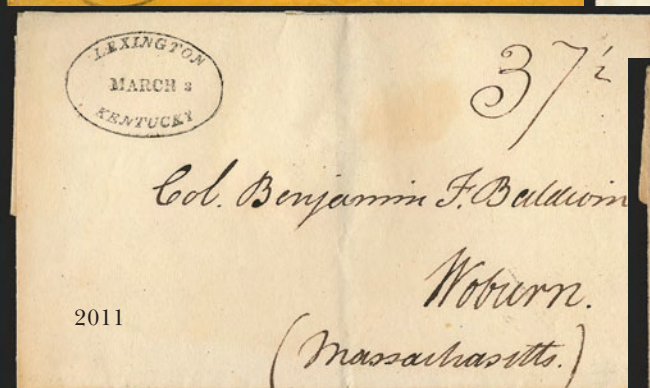 LEXINGTON
MARCH 3
KENTUCKY
37½
Col. Benjamin F. Baldwin
Woburn.
(Massachusetts.)
2011